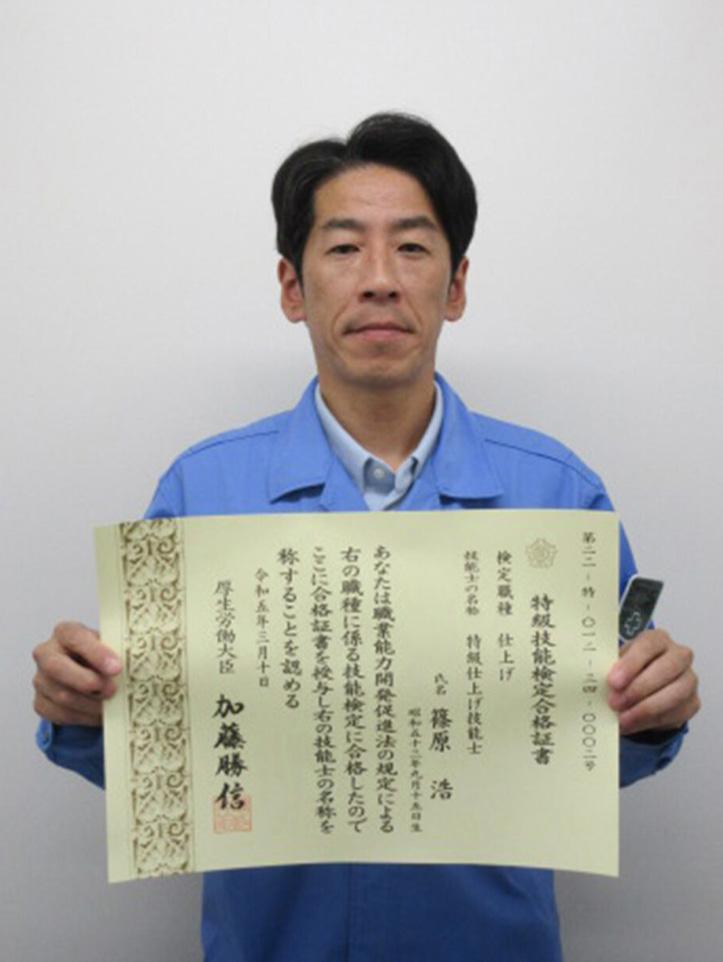 第二二-特-〇一二-二四-〇〇〇二号
特級技能検定合格証書
検定職種　仕上げ
技能士の名称　特級仕上げ技能士
氏名　篠原　浩
昭和五十二年九月十五日生
あなたは職業能力開発促進法の規定による
右の職種に係る技能検定に合格したので
ここに合格証書を授与し右の技能士の名称を
称することを認める
令和五年三月十日
厚生労働大臣　加藤勝信